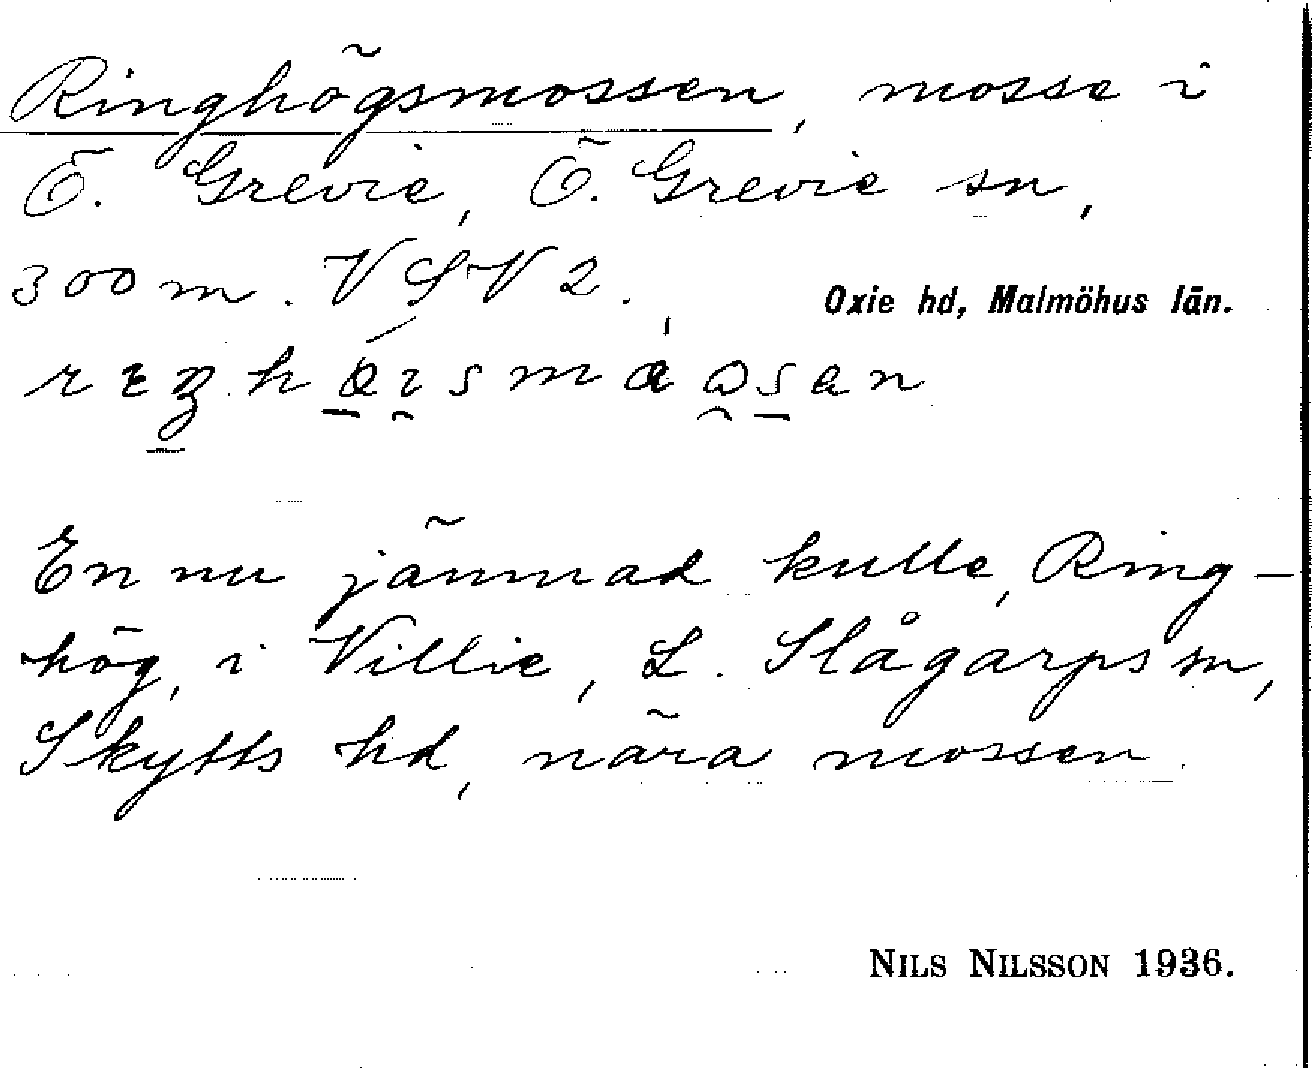 Ringhögsmossen, mosse i
Ö. Grevie, Ö. Grevie sn,
300 m. VSV 2.
Oxie hd, Malmöhus län.
En nu jämnad kulle, Ring-
hög, i Villie, L. Slågarps sn,
Skytts hd, nära mossen.
NILS NILSSON 1936.